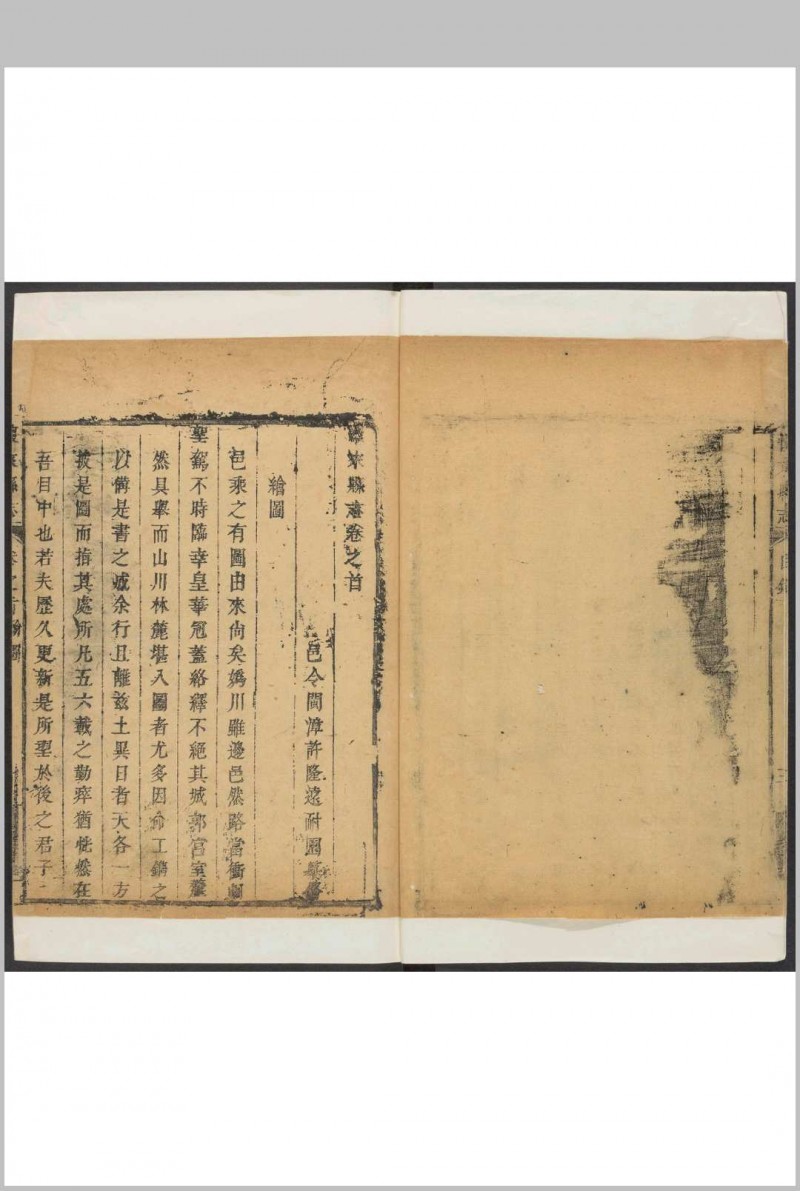 懷來縣志卷之首
邑令閩漳許隆遠耐園纂修
繪圖
邑乘之有圖由來尙矣媯川雖邊邑然路當衝
聖駕不時臨幸皇華冠蓋絡繹不絕其城郭宮室叢
然具舉而山川林麓堪入圖者尤多因命工鐫之
以備是書之 余行且離玆土異日者天各一方
披是圖而指其處所凡五六載之勤瘁猶恍然在
吾目中也若夫歷久更新是所望於後之君子
懷來縣志 卷之首 繪圖
縣志 目錄